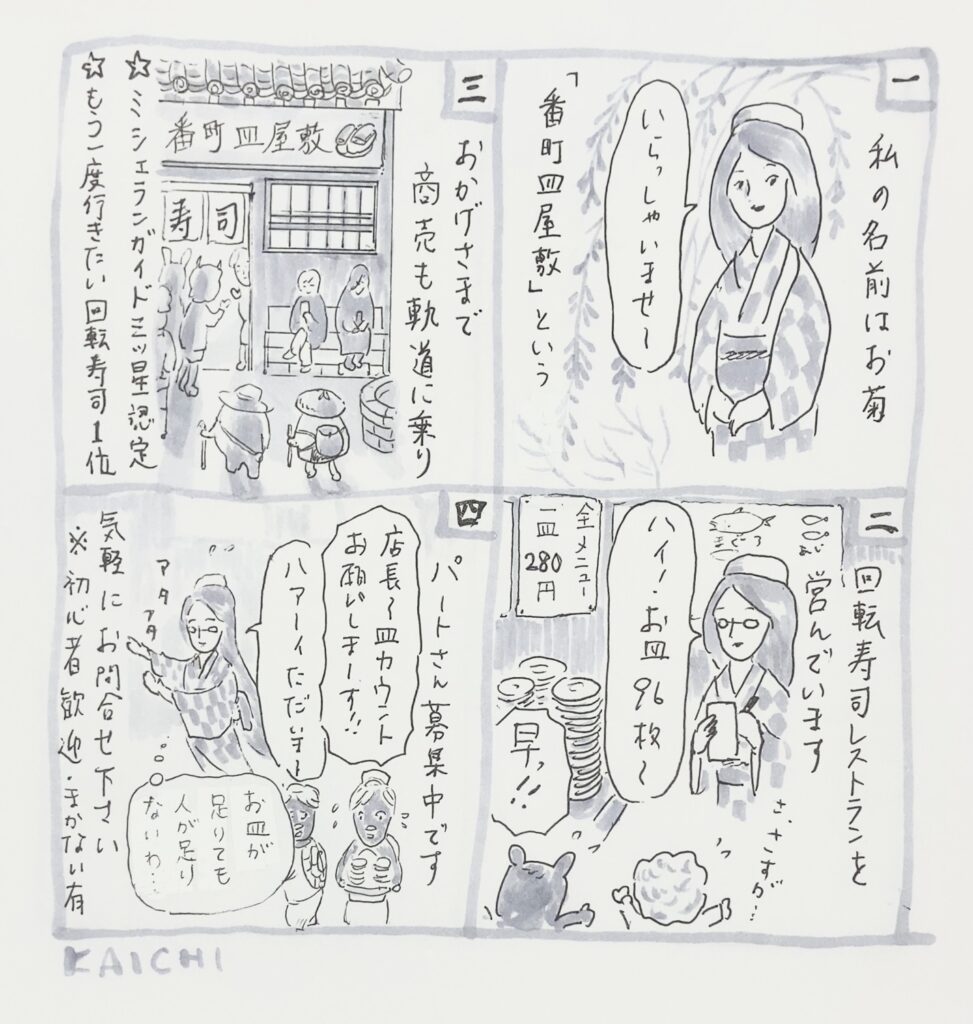 一
私の名前はお菊
いらっしゃいませ〜
「番町皿屋敷」という
二
回転寿司レストランを
営んでいます
あじ
まぐろ
ハイ！お皿96枚〜
全メニュー
一皿
280
円
早ッ!!
さ、さすが…
三
おかげさまで
商売も軌道に乗り
番町皿屋敷
寿司
☆ミシェランガイドミツ星認定
☆もう一度行きたい回転寿司1位
四
パートさん募集中です
店長〜皿カウント
お願いしまーす!!
ハァーイただいま〜
アタ
アタ
お皿が
足りても
人が足り
ないわ…
気軽にお問合せ下さい
※初心者歓迎・まかない有
KAICHI